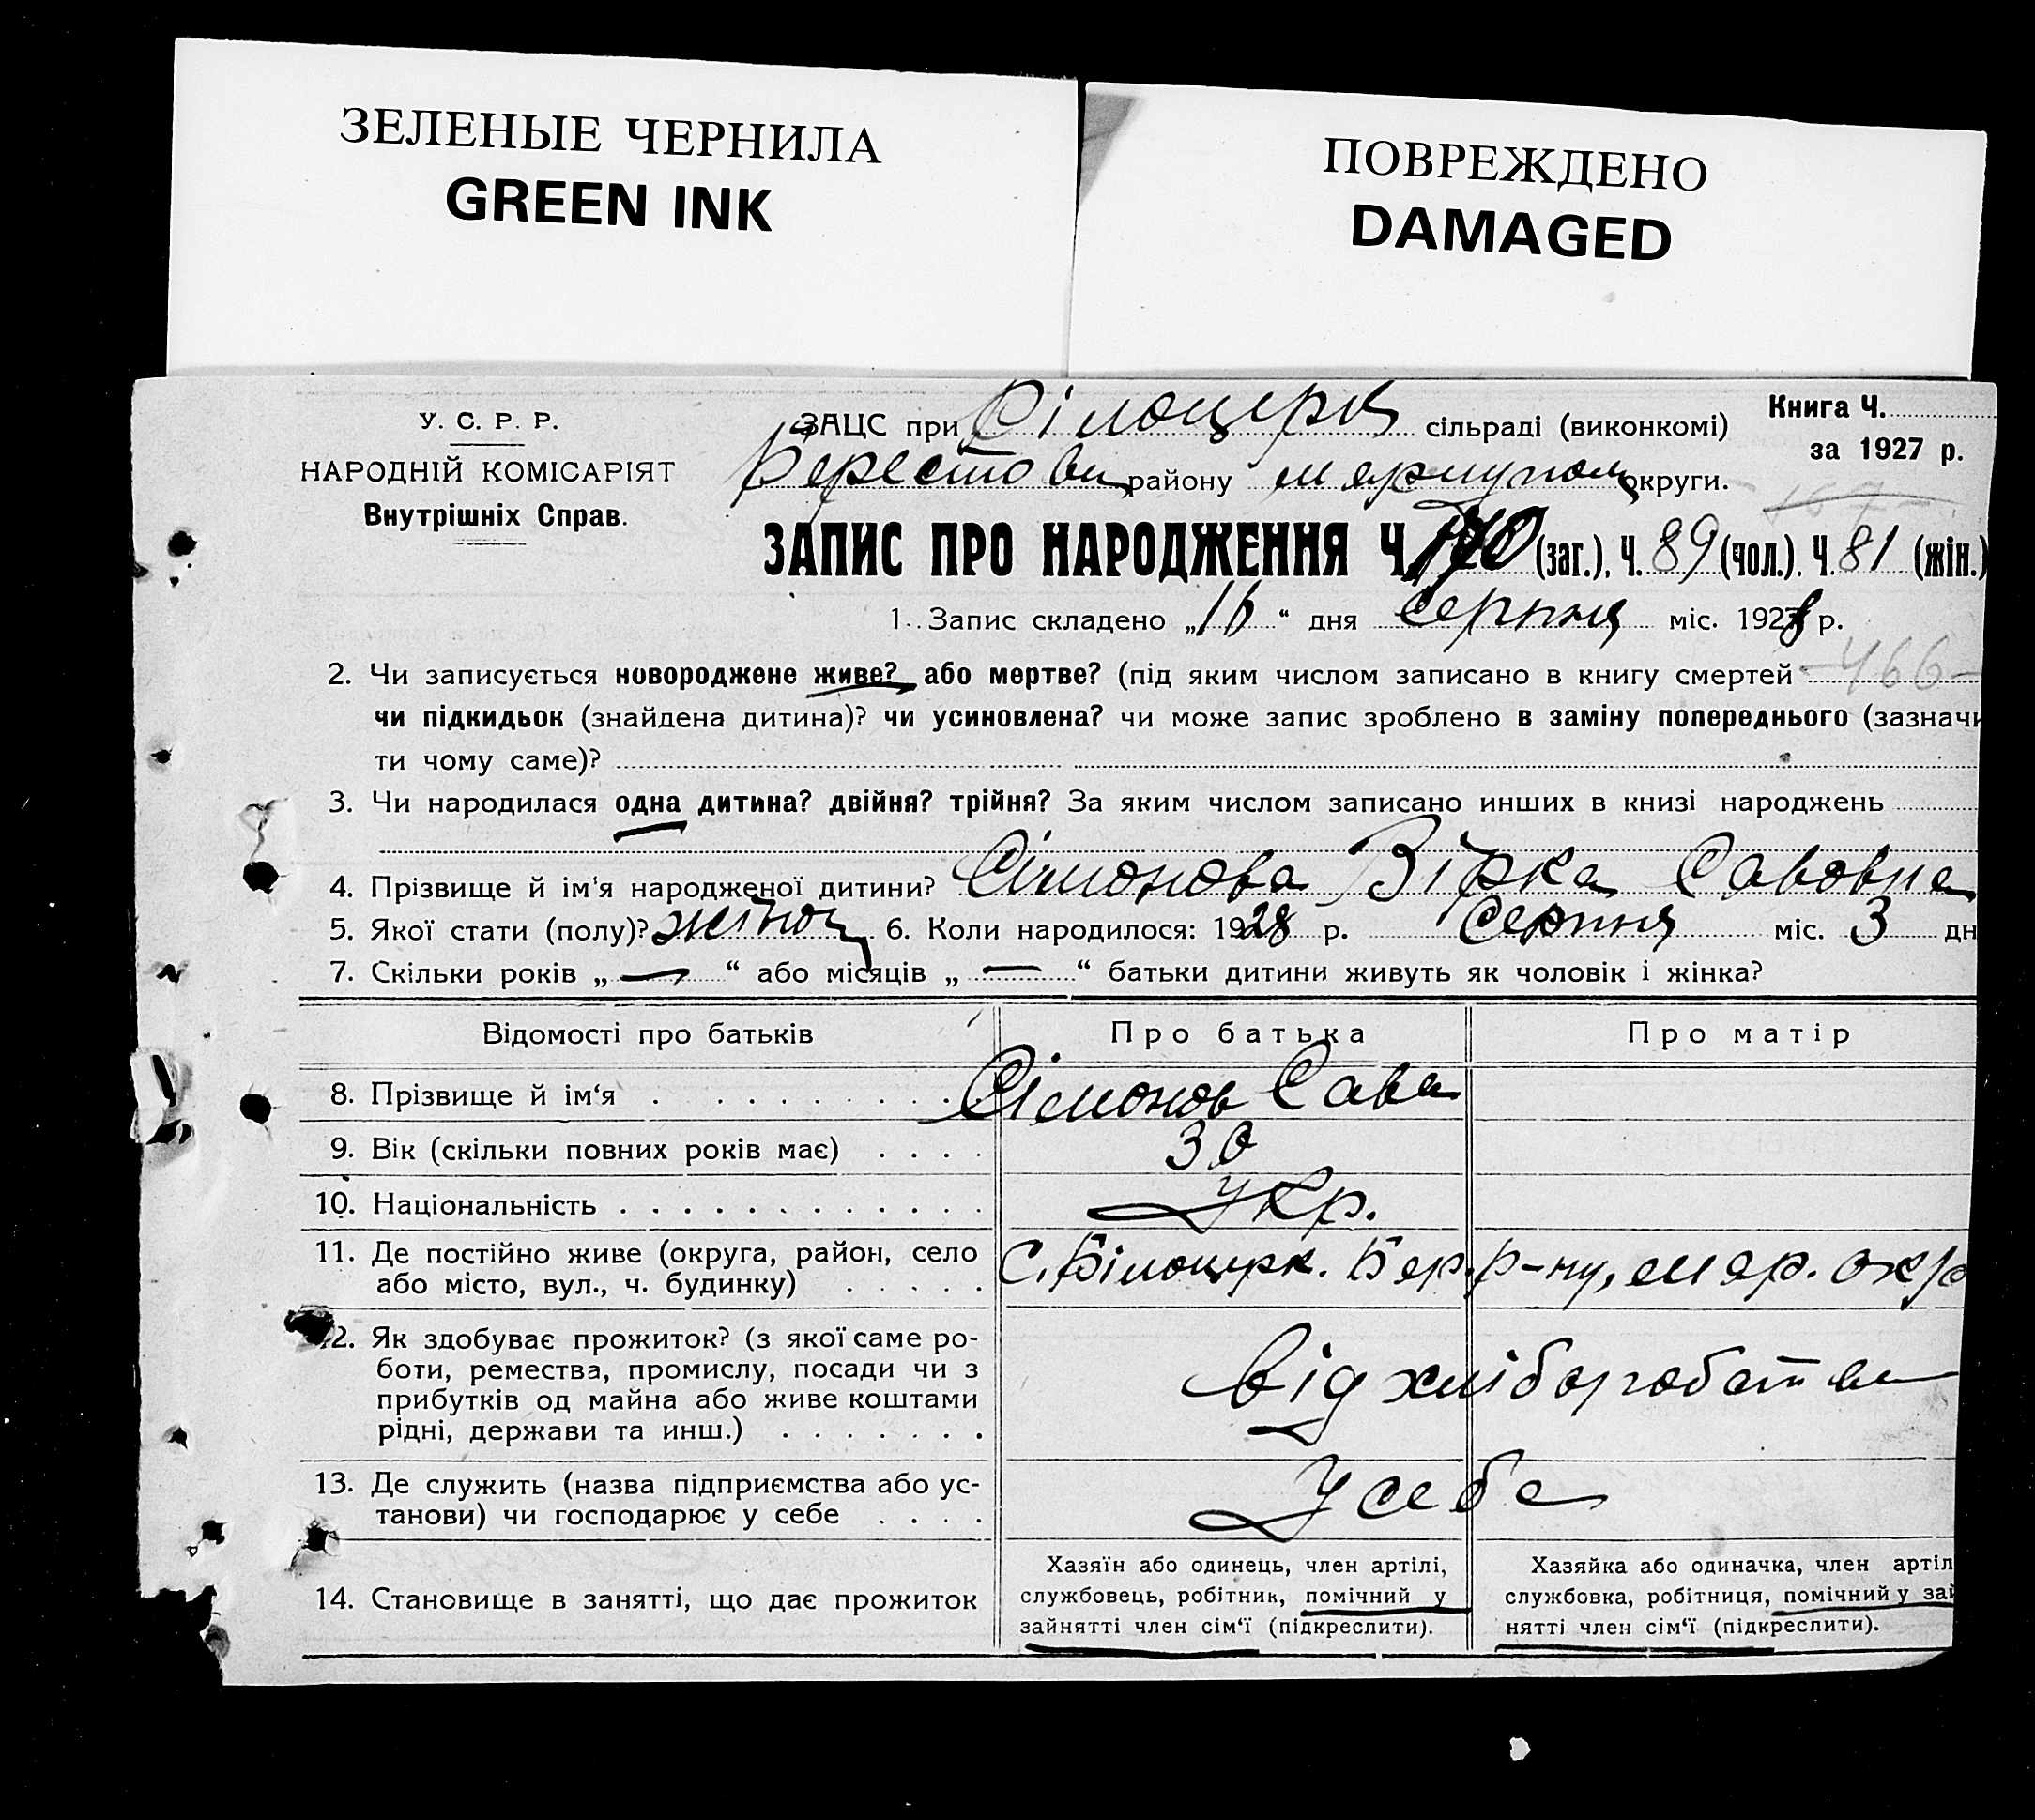 ЗЕЛЕНЫЕ ЧЕРНИЛА
GREEN INK
ПОВРЕЖДЕНО
DAMAGED
У. С. Р. Р.
НАРОДНІЙ КОМІСАРІЯТ
Внутрішніх Справ.
ЗАЦС при Білоцерк сільраді (виконкомі)
Берестов району Маріупол округи.
Книга Ч.
за 1927 р.
ЗАПИС ПРО НАРОДЖЕННЯ Ч. 170 (заг.), Ч. 89 (чол.). Ч. 81 (жін.)
1. Запис складено „16“ дня Серпня міс. 1928 р.
2. Чи записується новороджене живе? або мертве? (під яким числом записано в книгу смертей -466-
чи підкидьок (знайдена дитина)? чи усиновлена? чи може запис зроблено в заміну попереднього (зазначи
ти чому саме)?
3. Чи народилася одна дитина? двійня? трійня? За яким числом записано инших в книзі народжень
4. Прізвище й ім'я народженої дитини? Сімонова Вірка Савовна
5. Якої стати (полу)? жіноч 6. Коли народилося: 1928 р. Серпня міс. 3 дн
7. Скільки років „ — “ або місяців „ — “ батьки дитини живуть як чоловік і жінка?
Відомості про батьків Про батька Про матір
8. Прізвище й ім'я Сімонов Сава
9. Вік (скільки повних років має) 30
10. Національність Укр.
11. Де постійно живе (округа, район, село
або місто, вул., ч. будинку)
С. Білоцерк. Бер. р-ну, Мар. окр
12. Як здобуває прожиток? (з якої саме ро-
боти, ремества, промислу, посади чи з
прибутків од майна або живе коштами
рідні, держави та инш.)
від хліборобства
13. Де служить (назва підприємства або ус-
танови) чи господарює у себе
У себе
14. Становище в занятті, що дає прожиток
Хазяїн або одинець, член артілі,
службовець, робітник, помічний у
зайнятті член сім'ї (підкреслити).
Хазяйка або одиначка, член артіл
службовка, робітниця, помічний у зай
нятті член сім'ї (підкреслити).